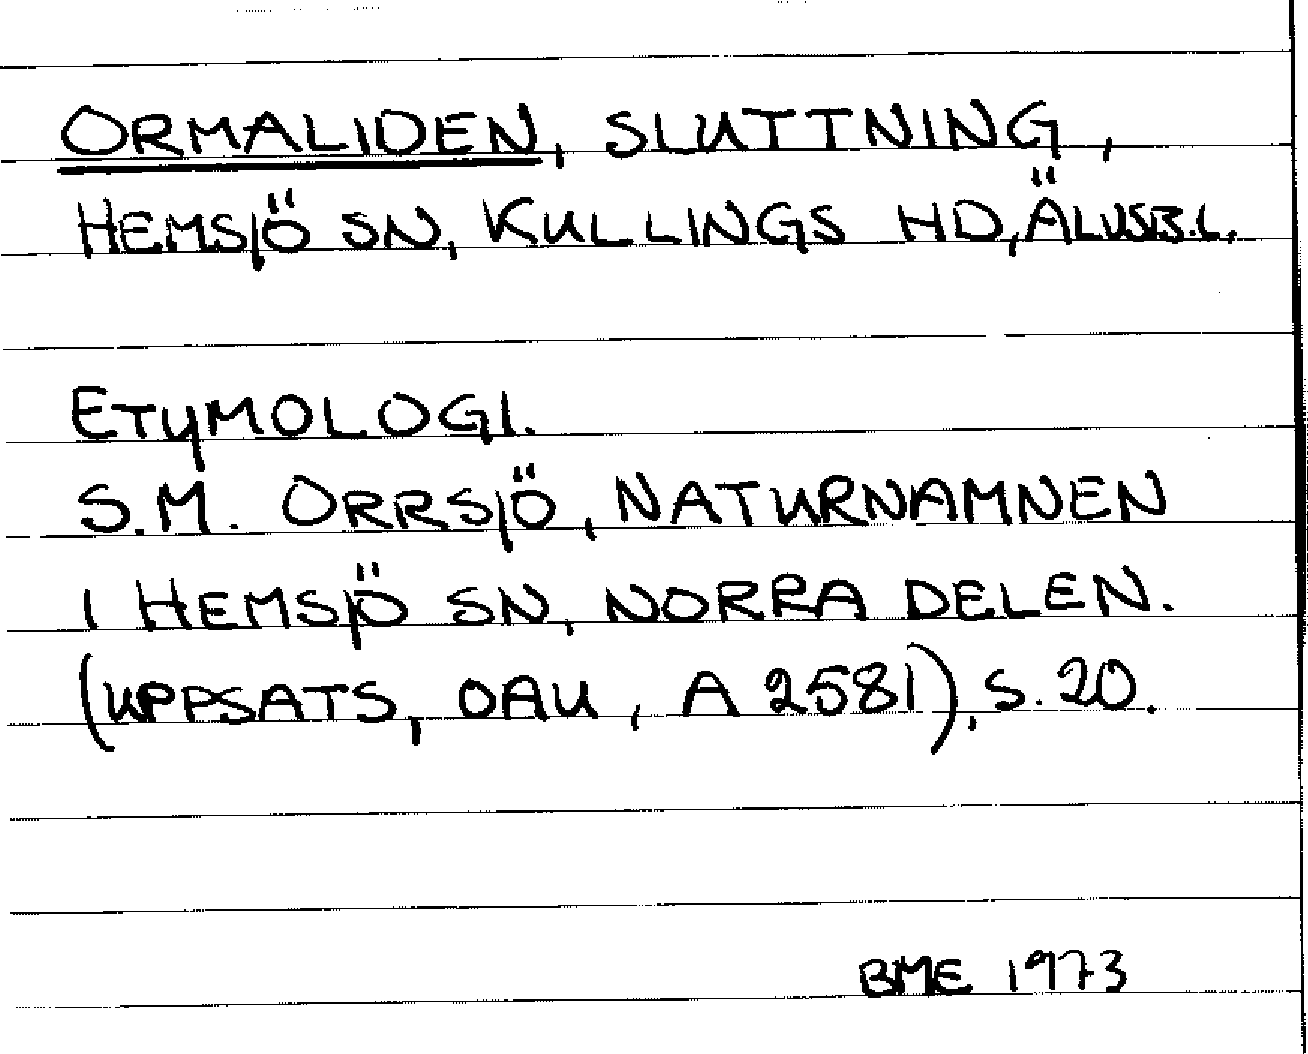 ORMALIDEN, SLUTTNING,
HEMSJÖ SN, KULLINGS HD, ÄLVSB.L.
ETYMOLOGI.
S.M. ORRSJÖ, NATURNAMNEN
I HEMSJÖ SN, NORRA DELEN.
(UPPSATS, OAU, A 2581), S. 20.
BME 1973